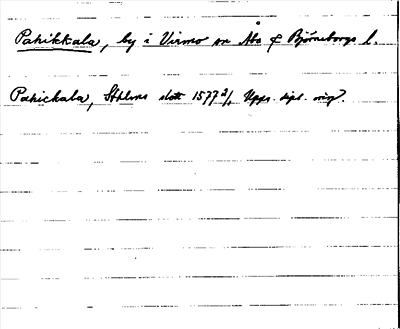 Pahikkala, by i Virmo sn Åbo & Björneborgs l.
Pahickala, Sthlms slott 1577 2/1 Upps. dipl. orig.